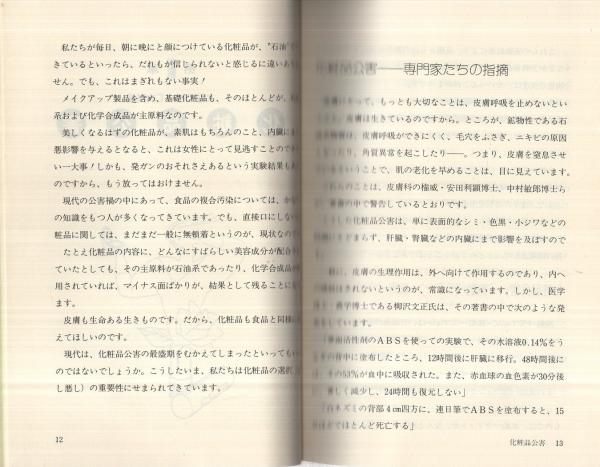 私たちが毎日、朝に晩にと顔につけている化粧品が、"石油"で
きているといったら、だれもが信じられないと感じるに違いあり
せん。でも、これはまぎれもない事実！
メイクアップ製品を含め、基礎化粧品も、そのほとんどが、
系および化学合成品が主原料なのです。
美しくなるはずの化粧品が、素肌はもちろんのこと、内臓に
悪影響を与えるとなると、これは女性にとって見逃すことのでき
い一大事！しかも、発ガンのおそれさえあるという実験結果も
のですから、もう放ってはおけません。
現代の公害禍の中にあって、食品の複合汚染については、か
の知識をもつ人が多くなってきています。でも、直接口にしない
粧品に関しては、まだまだ一般に無頓着というのが、現状なので
たとえ化粧品の内容に、どんなにすばらしい美容成分が配合
ていたとしても、その主原料が石油系であったり、化学合成品が
用されていれば、マイナス面ばかりが、結果として残ることに
ます。
皮膚も生命ある生きものです。だから、化粧品も食品と同様に
えてほしいのです。
現代は、化粧品公害の最盛期をむかえてしまったといってもい
のではないでしょうか。こうしたいま、私たちは化粧品の選択
し悪し）の重要性にせまられてきています。
12
化粧品公害——専門家たちの指摘
皮膚にとって、もっとも大切なことは、皮膚呼吸を止めないとい
皮膚は生きているのですから。ところが、鉱物性である石
は、皮膚呼吸ができにくく、毛穴をふさぎ、ニキビの原因
となったり、角質異常を起こしたり——。つまり、皮膚を窒息させ
ということで、肌の老化を早めることは、目に見えています。
のことは、皮膚科の権威・安田利顕博士、中村敏郎博士ら
著書の中で警告しているとおりです。
うした化粧品公害は、単に表面的なシミ・色黒・小ジワなどの
とどまらず、肝臓・腎臓などの内臓にまで影響を及ぼすので
に、皮膚の生理作用は、外へ向けて作用するのであり、内へ
はされないというのが、常識になっています。しかし、医学
・薬学博士である柳沢文正氏は、その著書の中で次のような発
しています。
界面活性剤のＡＢＳを使っての実験で、その水溶液0.14％をう
の背中に塗布したところ、12時間後に肝臓に移行。48時間後に
その53％が血中に吸収された。また、赤血球の血色素が30分後
しく減少し、24時間も復元しない」
「白ネズミの背部4cm四方に、連日筆でＡＢＳを塗布すると、15
ほどでほとんど死亡する」
化粧品公害 13